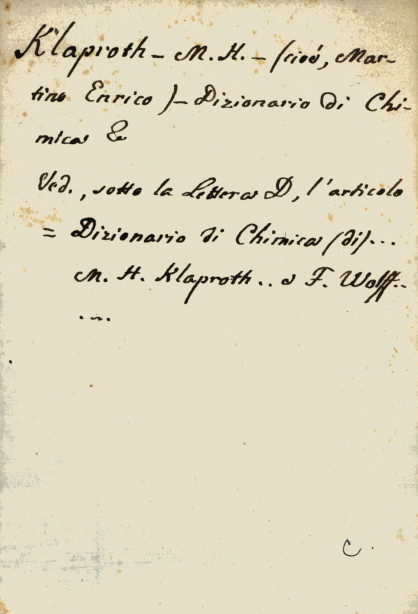 Klaproth - M. H. - (cioé, Mar-
tino Enrico) - Dizionario di Chi-
mica &
Ved., sotto la Lettera D, l'articolo
= Dizionario di Chimica (di)...
M. H. Klaproth .. e F. Wolff..
....
C.